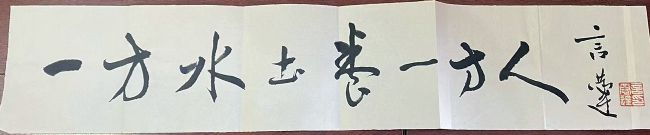 一方水土养一方人
言莲